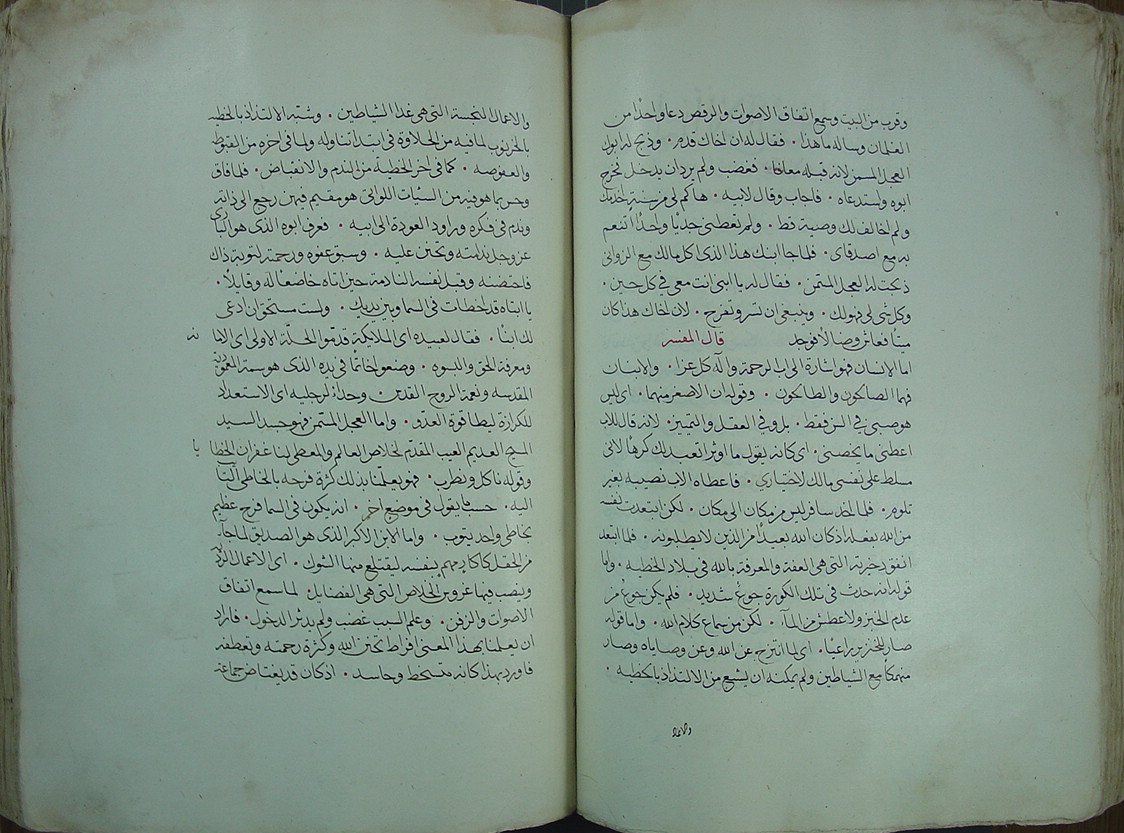 وقرب من البيت وسمع اتفاق الاصوات والرقص دعا واحدًا من
الغلمان وساله ما هذا . فقال له ان اخاك قدم . وذبح له ابوك
العجل المسمن لانه قبله معافا . فغضب ولم يرد ان يدخل فخرج
ابوه واستدعاه . فاجاب وقال لابيه . ها كم لي من سنة اخدمك
ولم اخالف لك وصية قط . ولم تعطني جديًا واحدًا اتنعم
به مع اصدقاي . فلما جا ابنك هذا الذي اكل مالك مع الزواني
ذبحت له العجل المثمن . فقال له يا ابني انت معي في كل حين .
وكل شي لي فهو لك . وينبغي ان تسر وتفرح . لان اخاك هذا كان
ميتًا فعاش وضالًا فوجد قال المفسر
اما الانسان فهو اشارة الى اب الرحمة واله كل عزا . والابنان
فهما الصالحون والطالحون . وقوله ان الاصغر منهما . اي ليس
هو صبي في السن فقط . بل وفي العقل والتمييز . لانه قال للاب
اعطني ما يخصني . اي كانه يقول ما اوثر اتعبد لك كرهًا لاني
مسلط على نفسي مالك لاختياري . فاعطاه الاب نصيبه بغير
تلوم . فلما اخذ سافر ليس من مكان الى مكان . لكن ابتعدت نفسه
من الله بفعله اذ كان الله بعيدًا من الذين لا يطلبونه . فلما ابتعد
انفق ذخيرته التي هي العفة والمعرفة بالله في بلاد الخطيه . واما
قوله انه حدث في تلك الكورة جوع شديد . فلم يكن جوع من
عدم الخبز ولا عطش من الماء . لكن من سماع كلام الله . واما قوله
صار للخنازير راعيًا . اي لما انتزح عن الله وعن وصاياه وصار
منهمكًا مع الشياطين ولم يمكنه ان يشبع من الالتذاذ بالخطيه .
والاعمال
والاعمال النجسة التي هي غذا الشياطين . وشبه الالتذاذ بالخطيه
بالخرنوب لما فيه من الحلاوة في ابتدا تناوله ولما في اخره من القبوضه
والعفوصه . كما في اخر الخطية من الندم والانقباض . فلما فاق
وحس بما هو فيه من السيات اللواتي هو مقيم فيهن رجع الى ذاته
وندم في فكره وراود العودة الى ابيه . فعرف ابوه الذي هو الباري
عز وجل بندامته وتحنن عليه . وسبق عفوه ورحمته لتوبة ذاك
فاحتضنه وقبل نفسه النادمة حين اتاه خاضعًا له وقايلًا .
يا ابتاه قد اخطات في السما وبين يديك . ولست مستحق ان ادعى
لك ابنًا . فقال لعبيده اي الملايكة قدموا الحلة الاولى اي الامانه
ومعرفة الحق والبنوه . وضعوا خاتمًا في يده الذي هو سمة المعمودية
المقدسه ونعمة الروح القدس . وحذاءً لرجليه اي الاستعداد
للكرازة ليطا قوة العدو . واما العجل المثمن فهو جسد السيد
المسيح العديم العيب المقدم لخلاص العالم والمعطي لنا غفران الخطايا
وقوله ناكل ونطرب . فهو يعلمنا بذلك كثرة فرحه بالخاطي التايب
اليه . حسبما يقول في موضع اخر . انه يكون في السما فرح عظيم
بخاطي واحد يتوب . واما الابن الاكبر الذي هو الصديق لما جاء
من الحقل كان مهتم بنفسه ليقتلع منها الشوك . اي الاعمال الرديه
وينصب فيها غروس الخلاص التي هي الفضايل لما سمع اتفاق
الاصوات والزفن . وعلم السبب غضب ولم يدثر الدخول . فاراد
ان يعلمنا بهذا المعنى افراط تحنن الله وكثرة رحمته وتعطفه
فاورد بهذا كانه متسخط وحاسد . اذ كان قد يغتاض جماعة